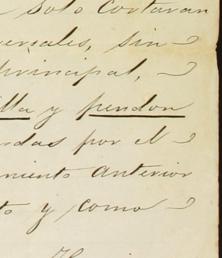 solo cortaran
ersales, sin
principal,
lla y pendon
das por el
miento anterior
to y como